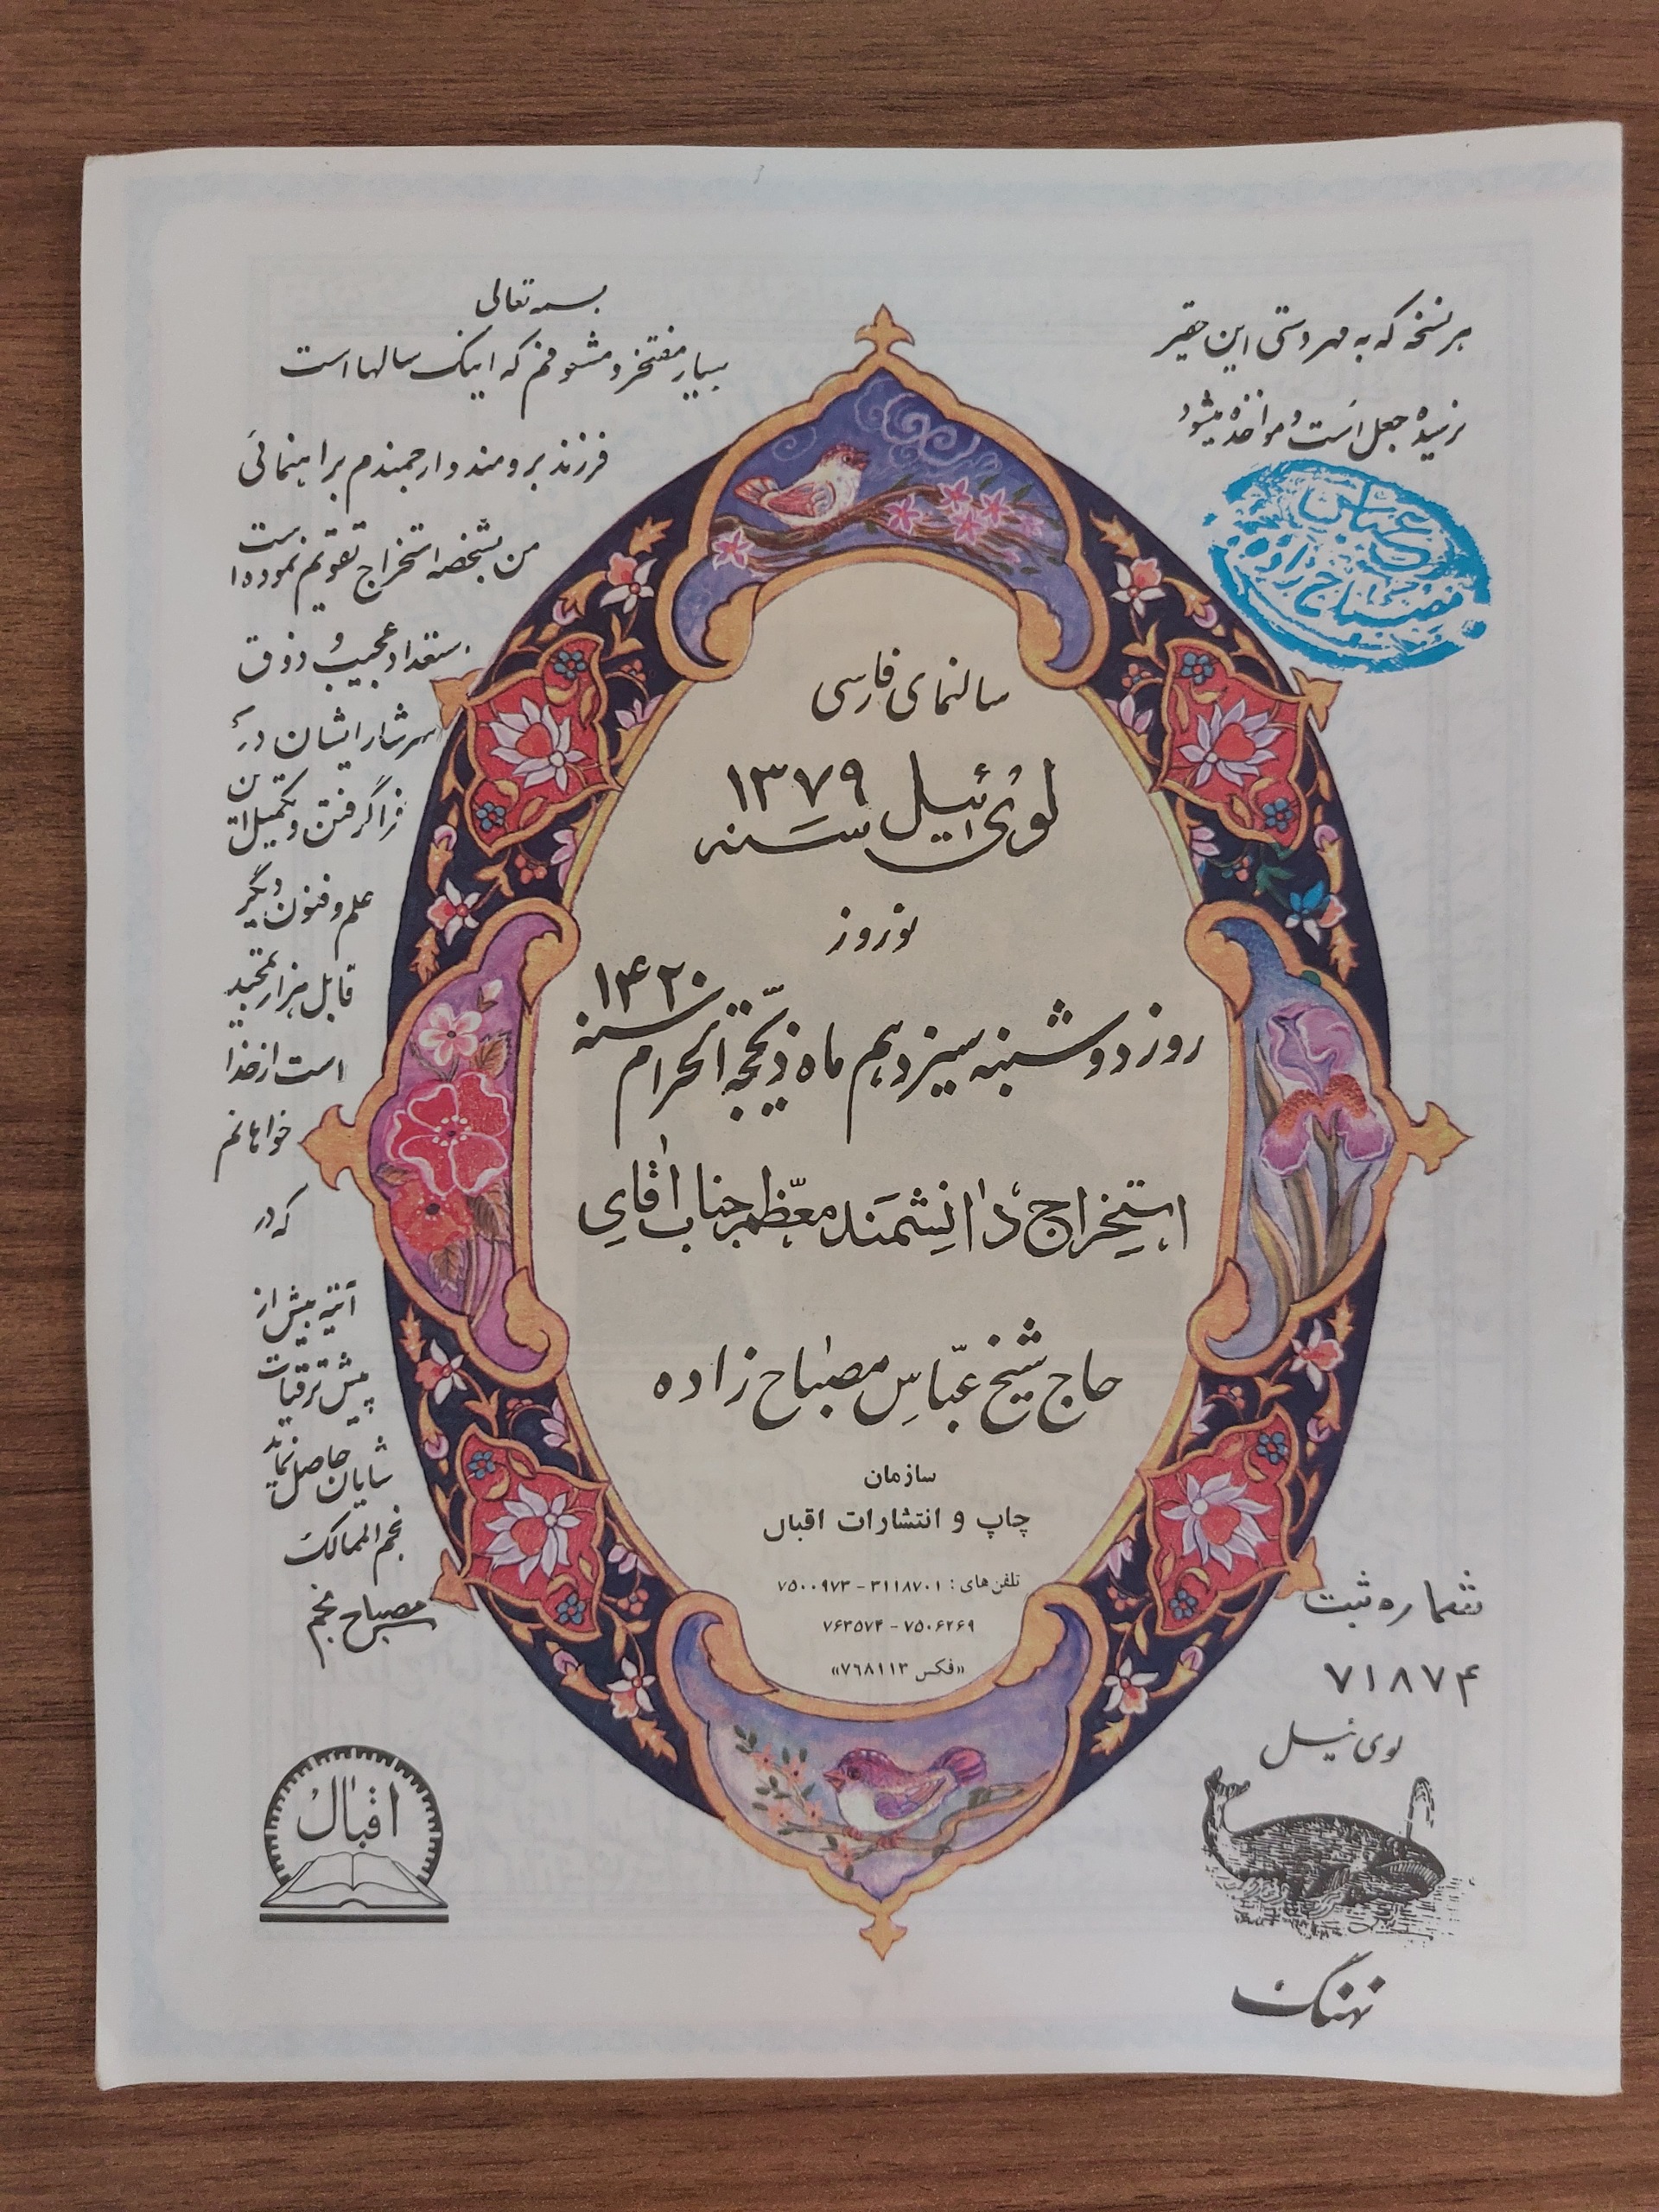 هر نسخه که به مهر دستی این حقیر
نرسیده جعل است و مواخذه میشود
عباس
مصباح زاده
بسمه تعالی
بسیار مفتخر و مشعوفم که اینک سالها است
فرزند برومند و ارجمندم براهنمائی
من بشخصه استخراج تقویم نموده است
استعداد عجیب و ذوق
سرشار ایشان در
فرا گرفتن و تکمیل این
علم و فنون دیگر
قابل هزار تمجید
است از خدا
خواهانم
که در
آتیه بیش از
پیش ترقیات
شایان حاصل نماید
نجم الممالک
مصباح منجم
سالنمای فارسی
لوی ئیل سنه ۱۳۷۹
نوروز
روز دوشنبه سیزدهم ماه ذیحجة الحرام سنه ۱۴۲۰
استخراج دانشمند معظم جناب آقای
حاج شیخ عباس مصباح زاده
سازمان
چاپ و انتشارات اقبال
تلفن های : ۳۱۱۸۷۰۱ – ۷۵۰۰۹۷۳
۷۵۰۶۲۶۹ – ۷۶۳۵۷۴
«فکس ۷۶۸۱۱۳»
شماره ثبت
۷۱۸۷۴
لوی ئیل
نهنگ
اقبال